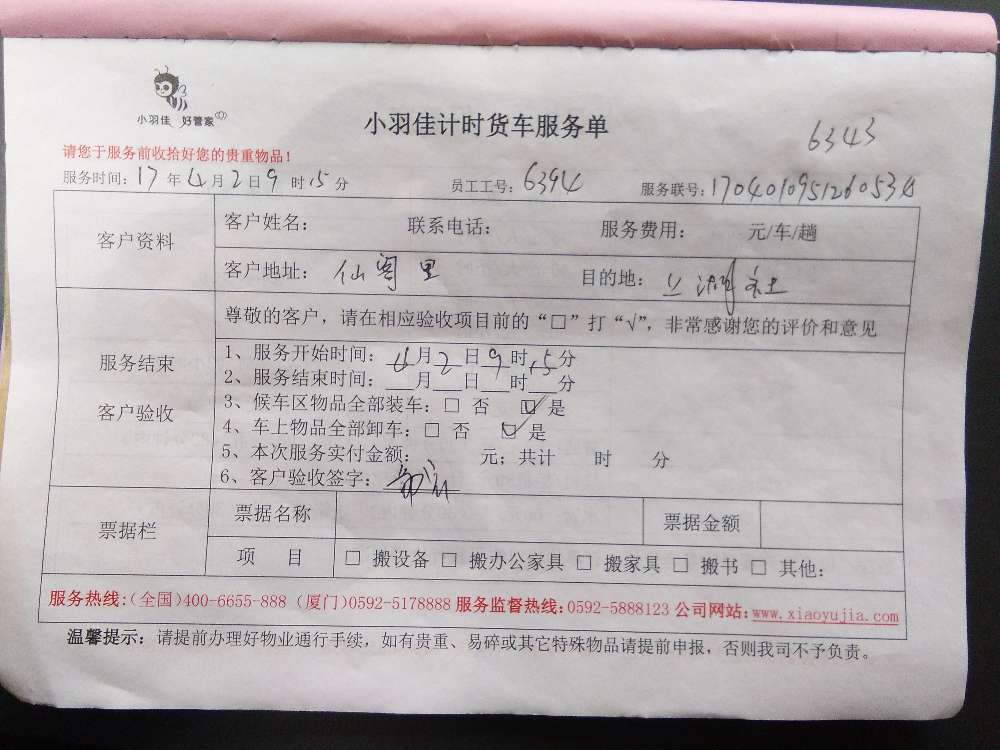 小羽佳 好管家
小羽佳计时货车服务单
6343
请您于服务前收拾好您的贵重物品！
服务时间：17年4月2日9时15分 员工工号：6394 服务联号：
客户资料
客户姓名： 联系电话： 服务费用： 元/车/趟
客户地址：仙阁里 目的地：
服务结束
客户验收
尊敬的客户，请在相应验收项目前的“□”打“√”，非常感谢您的评价和意见
1、服务开始时间：4月2日9时15分
2、服务结束时间：___月___日___时___分
3、候车区物品全部装车：□ 否 ☑ 是
4、车上物品全部卸车：□ 否 ☑ 是
5、本次服务实付金额： 元；共计 时 分
6、客户验收签字：
票据栏
票据名称 票据金额
项 目 □ 搬设备 □ 搬办公家具 □ 搬家具 □ 搬书 □ 其他：
服务热线：(全国)400-6655-888 (厦门)0592-5178888 服务监督热线：0592-5888123 公司网站：www.xiaoyujia.com
温馨提示：请提前办理好物业通行手续，如有贵重、易碎或其它特殊物品请提前申报，否则我司不予负责。